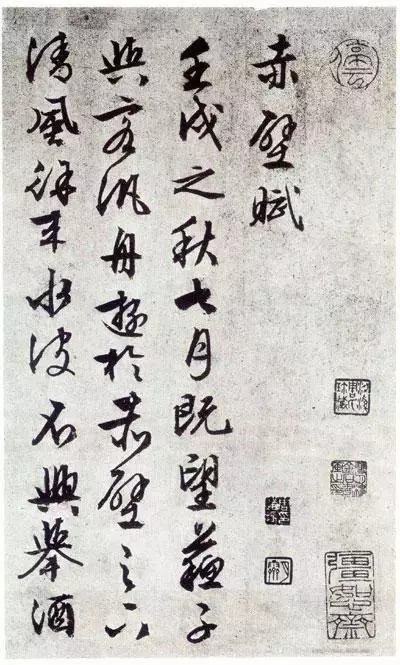 停雲
赤壁賦
壬戌之秋七月既望蘇子
與客汎舟遊於赤壁之下
清風徐來水波不興舉酒